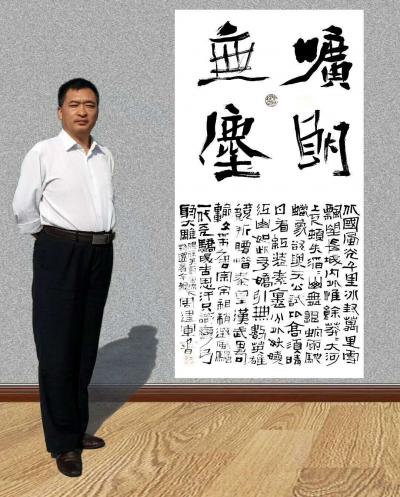 曠朗
無塵
北國風光千里冰封萬里雪
飄望長城內外惟餘莽莽大河
上下頓失滔滔山舞銀蛇原馳
蠟象欲與天公試比高須晴
日看紅裝素裹分外妖嬈
江山如此多嬌引無數英雄
競折腰惜秦皇漢武略
輸文采唐宗宋祖稍遜風騷
一代天驕成吉思汗只識彎弓
射大雕
周建東